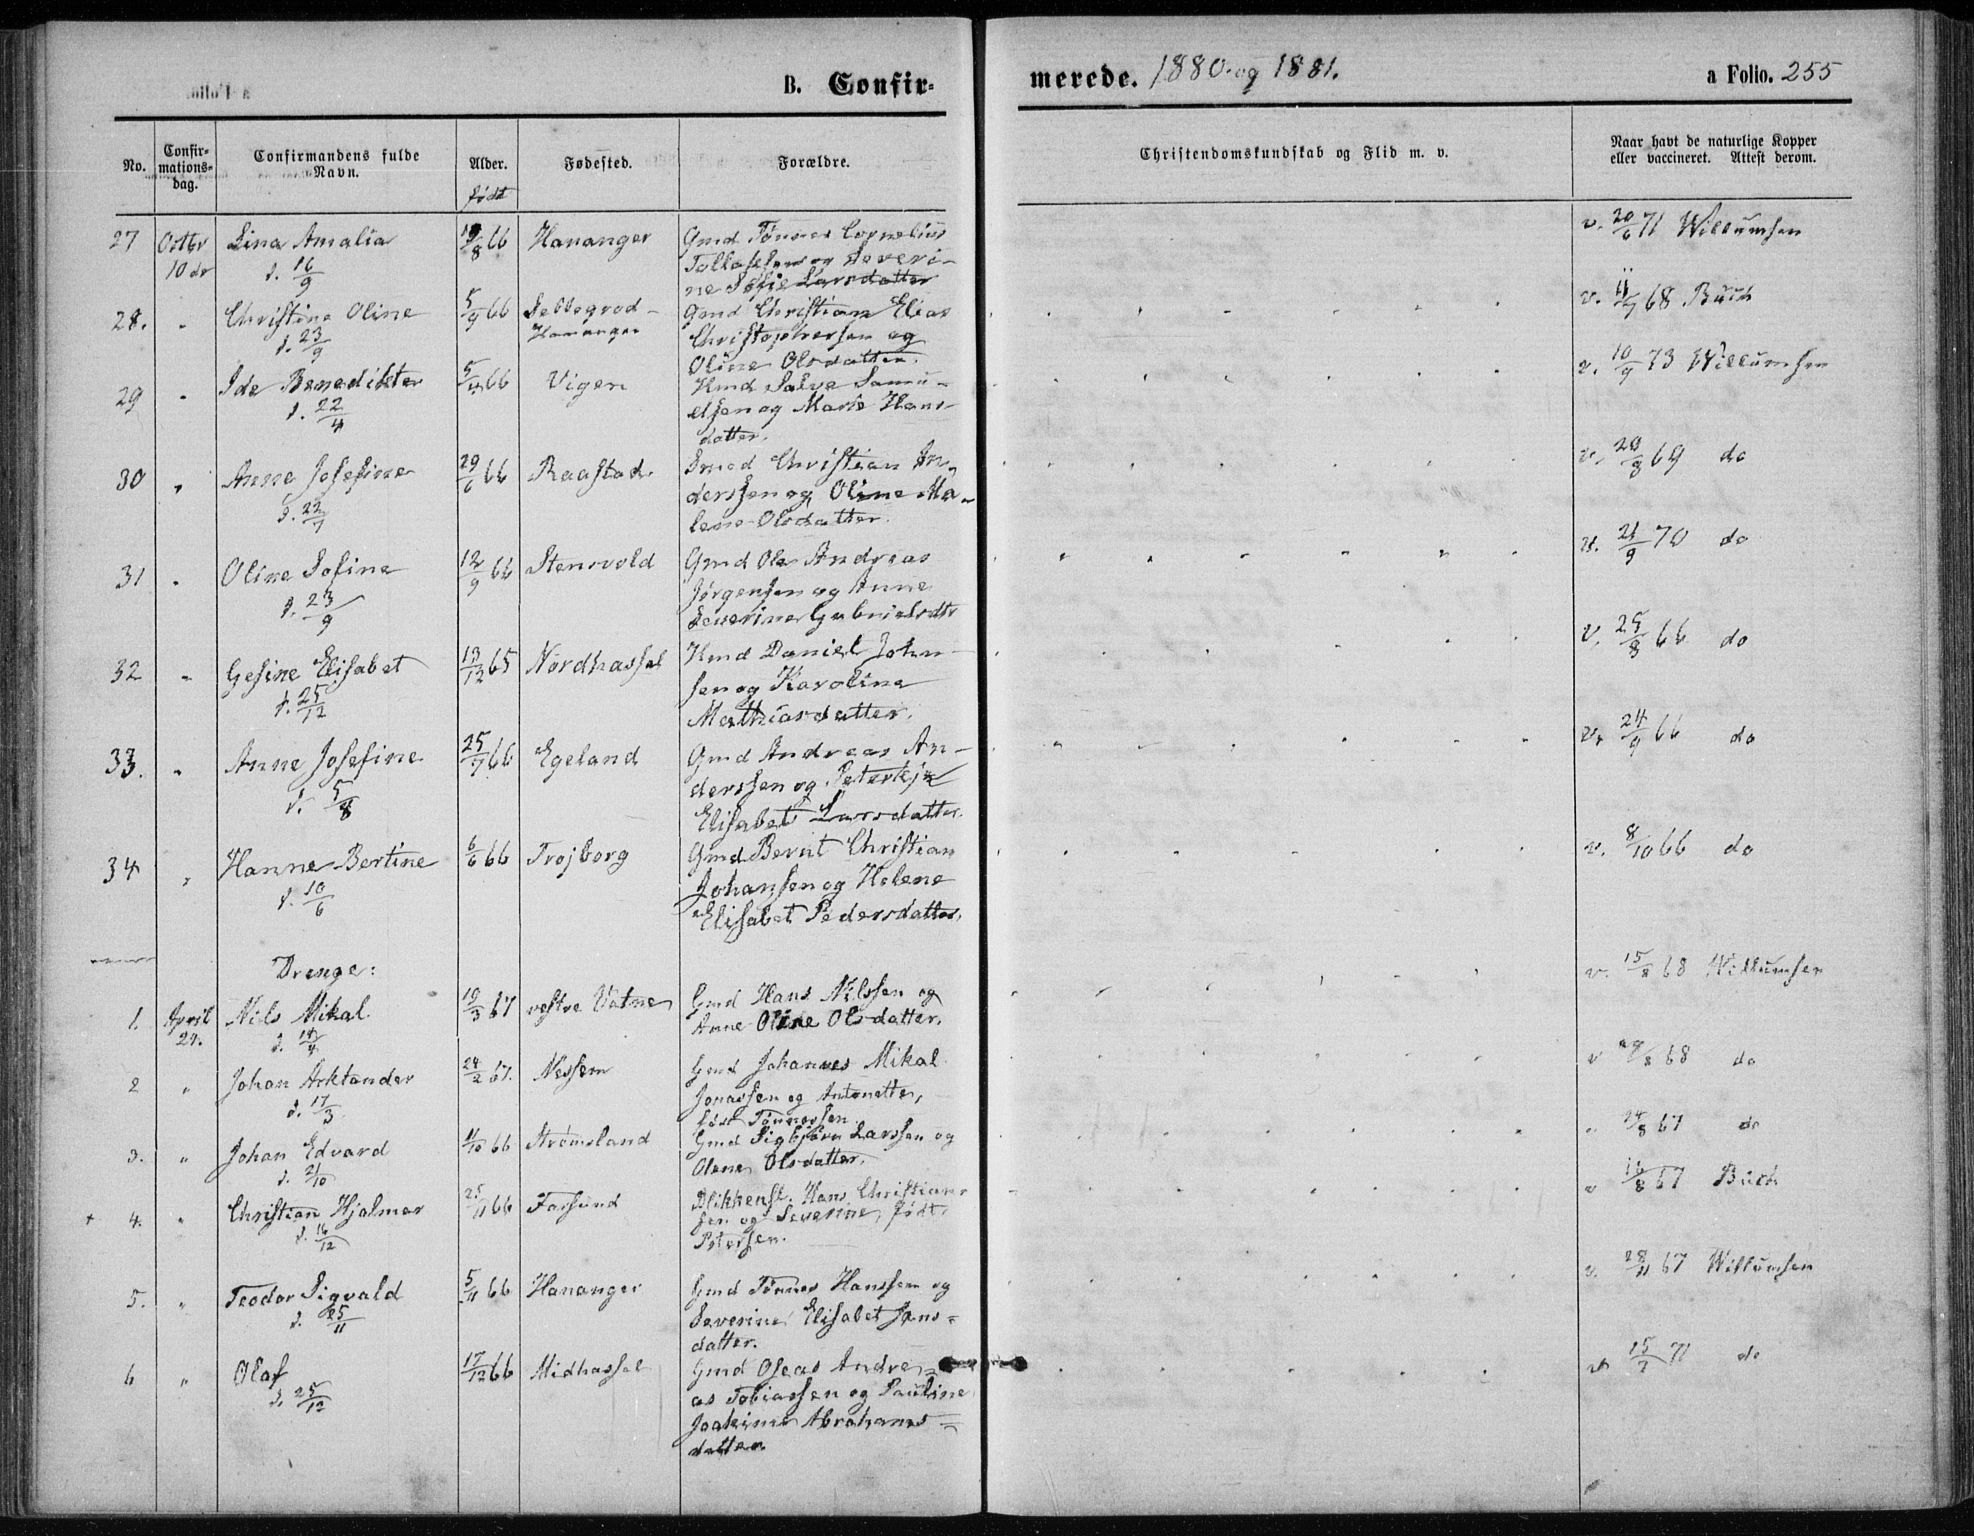 B. Confir-
merede. 1880 og 1881.
a Folio. 255
No.
Confir-
mations-
dag.
Confirmandens fulde
Navn.
Alder.
født
Fødested.
Forældre.
Christendomskundskab og Flid m. v.
Naar havt de naturlige Kopper
eller vaccineret. Attest derom.
27 Octbr Lina Amalia 66 Hananger Gmd Tønnes Cornelius
10 de d. 16/9 og Severi-
ne Sofie Larsdatter
v. 20/6 71 Willumsen
28. " Christine Oline 5/9 66 Hananger Gmd Christian Elias
d. 23/9 Christophersen og
Oline Olsdatter.
v. 68 Buch
29 " Ide Benedikte 66 Vigen Hmd Salve Samu-
d. 22/4 elsen og Marie Hans-
datter.
v. 10/9 73 Willumsen
30 " Anne Josefine 29/6 66 Raastad Christian An-
derssen og Oline Ma-
lene Olsdatter.
v. 69 do
31 " Oline Sofine 12/9 66 Stensvold Gmd Ole Andreas
d. 23/9 Jørgensen og Anne
Severine Gabrielsdtr
v. 21/9 70 do
32 " Gesine Elisabet 13/12 65 Nordhassel Hmd Daniel John-
d. 25/12 sen og Karoline
Mathiasdatter.
v. 25/8 66 do
33. " Anne Josefine 25/7 66 Egeland Gmd Andreas An-
d. 5/8 derssen og
Elisabet Larsdatter.
v. 24/9 66 do
34 " Hanne Bertine 6/6 66 Trojborg Gmd Bernt Christian
d. 10/6 Johansen og Helene
Elisabet Pedersdatter.
v. 8/10 66 do
Drenge:
1. April Nils Mikal 19/3 67 vestre Vatne Gmd Hans Nilssen og
24. d. 14/4 Anne Oline Olsdatter.
v. 15/8 68 Willumsen
2 " Johan Arktander 24/2 67. Nessem Gmd Johannes Mikal
d. 17/3 Jonassen og Antonette,
født Tønnessen
v 68 do
3. " Johan Edvard 66 Strømsland Gmd Sigbjørn Larssen og
d. 21/10 Olene Olsdatter.
" 24/8 67 do
+ 4. " Christian Hjalmar 25/11 66 Farsund Blikkensl. Hans Christian-
d. 16/12 sen og Severine, født
Petersen.
v 16/8 67 Buch
5. " Teodor Sigvald 5/11 66 Hananger Gmd Tønnes Hanssen og
d. 25/11 Severine Elisabet Jans-
datter.
v. 28/11 67 Willumsen
6 " Olaf 17/12 66 Midhassel Gmd Oseas Andre-
d. 25/12 as Tobiassen og Pauline
Joakime Abrahams-
datter.
v 71 do